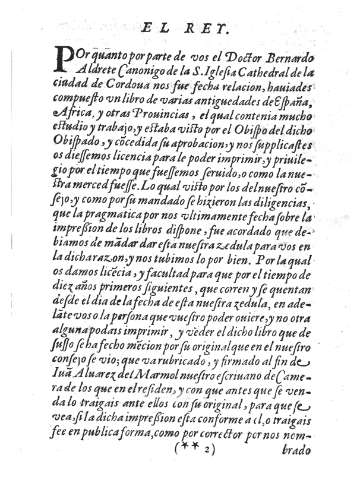 EL REY.
POr quãnto por parte de vos el Doctor Bernardo
Aldrete Canonigo de la S. Iglesia Cathedral de la
ciudad de Cordoua nos fue fecha relacion, hauiades
compuesto vn libro de varias antiguedades de España,
Africa, y otras Prouincias, el qual contenia mucho
estudio y trabajo, y estaba visto por el Obispo del dicho
Obispado, y cõcedida su aprobacion, y nos supplicastes
os diessemos licencia para le poder imprimir, y priuile-
gio por el tiempo que fuessemos seruido, o como la nue-
stra merced fuesse. Lo qual visto por los del nuestro cõ-
sejo, y como por su mandado se hizieron las diligencias,
que la pragmatica por nos vltimamente fecha sobre la
impresion de los libros dispone, fue acordado que de-
biamos de mãdar dar esta nuestra zedula para vos en
la dicha razon, y nos tubimos lo por bien. Por la qual
os damos licẽcia, y facultad para que por el tiempo de
diez años primeros siguientes, que corren y se quentan
desde el dia de la fecha de esta nuestra zedula, en ade-
lãte vos o la persona que vuestro poder ouiere, y no otra
alguna podais imprimir, y vẽder el dicho libro que de
susso se ha fecho mẽcion por su original que en el nuestro
consejo se vio; que va rubricado, y firmado al fin de
Iuã Aluarez del Marmol nuestro escriuano de Came-
ra de los que en el residen, y con que antes que se ven-
da lo traigais ante ellos con su original, para que se
vea, si la dicha impresion esta conforme a el, o traigais
fee en publica forma, como por corrector por nos nom-
(** 2) brado